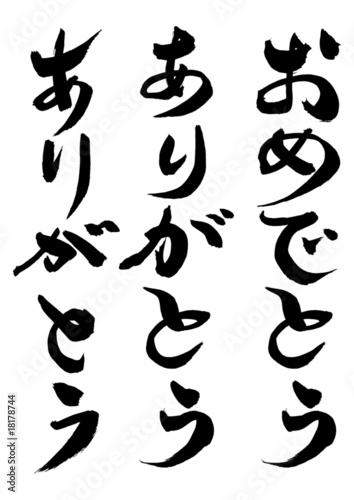 おめでとう
ありがとう
ありがとう
Adobe Stock | #18178744